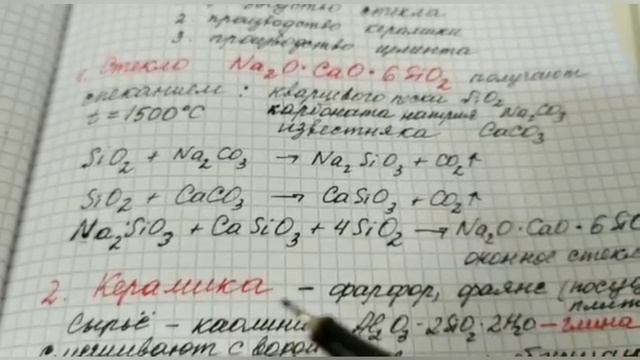 стекла
2. производство керамики
3. производство цемента
1. Стекло Na₂O·CaO·6SiO₂ получают
спеканием: кварцевого песка SiO₂
t = 1500°C карбоната натрия Na₂CO₃
известняка CaCO₃
SiO₂ + Na₂CO₃ → Na₂SiO₃ + CO₂↑
SiO₂ + CaCO₃ → CaSiO₃ + CO₂↑
Na₂SiO₃ + CaSiO₃ + 4SiO₂ → Na₂O·CaO·6SiO
оконное стекл
2. Керамика – фарфор, фаянс (посуд
плит
Сырьё – каолин Al₂O₃·2SiO₂·2H₂O – глина
с водой